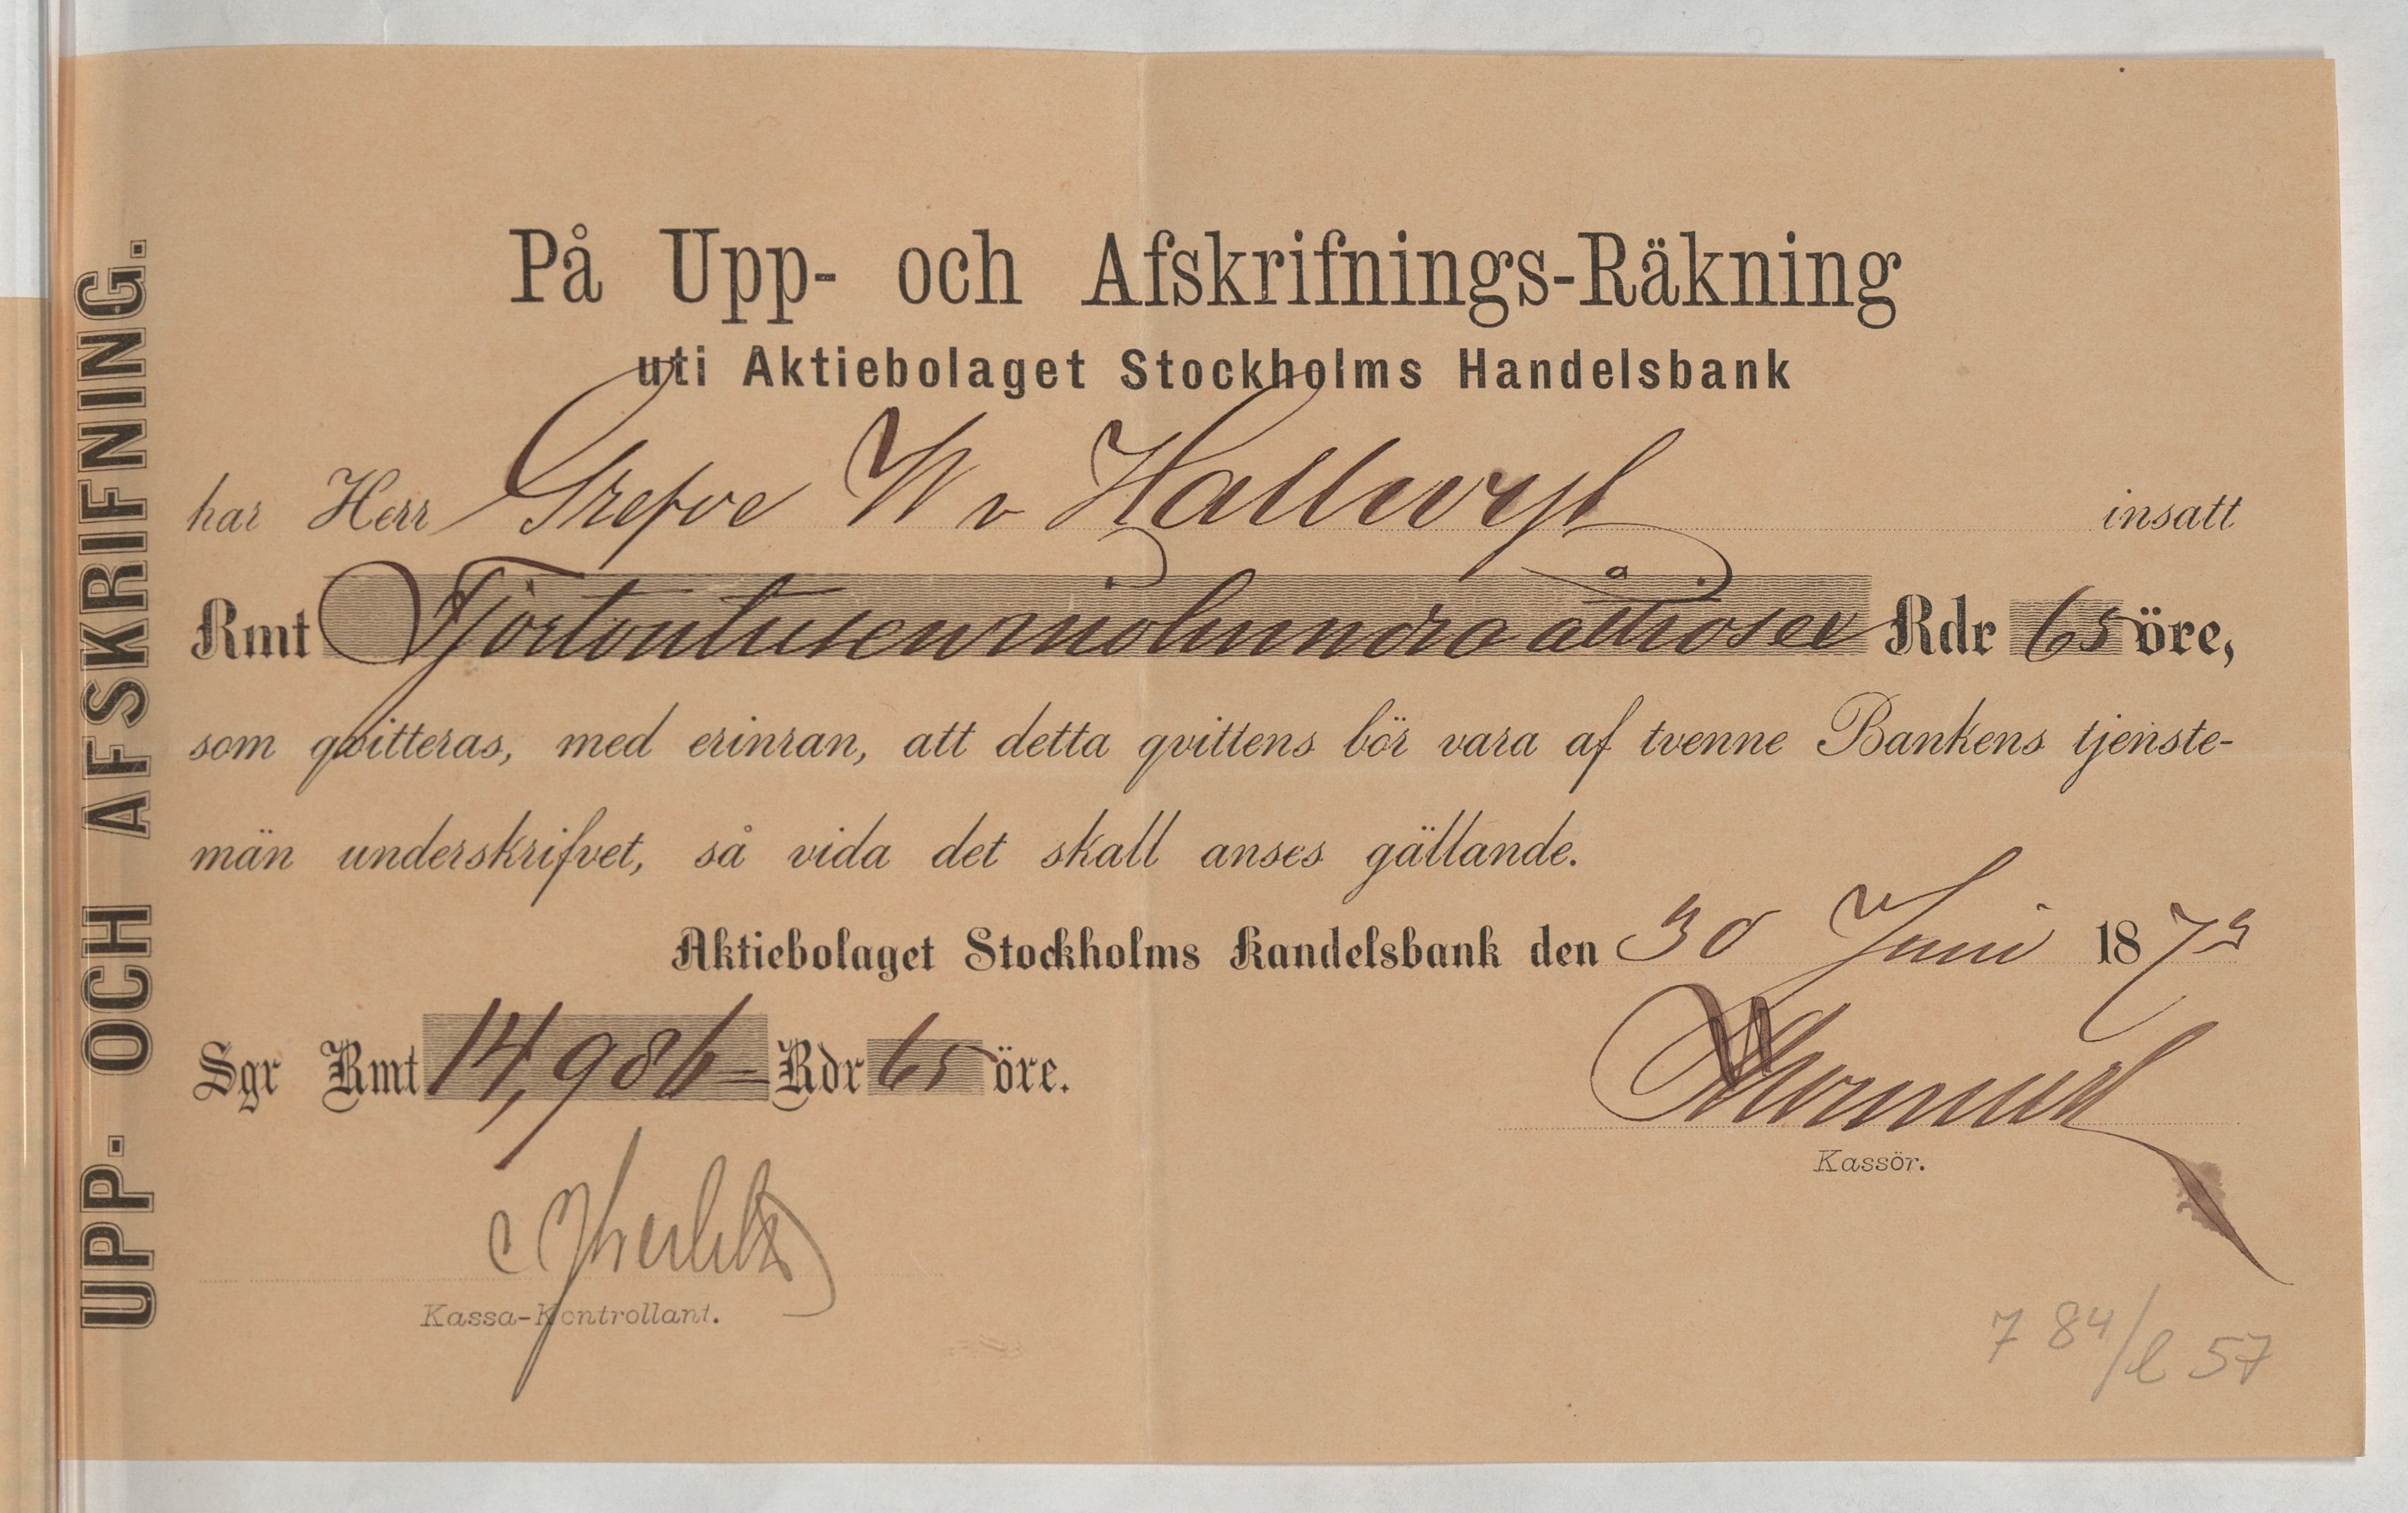 UPP- OCH AFSKRIFNING.
På Upp- och Afskrifnings-Räkning
uti Aktiebolaget Stockholms Handelsbank
har Herr Grefve W v Hallwyl insatt
Rmt Fjortontusenniohundraåttiosex Rdr 65 öre,
som qvitteras, med erinran, att detta qvittens bör vara af tvenne Bankens tjenste-
män underskrifvet, så vida det skall anses gällande.
Aktiebolaget Stockholms Handelsbank den 30 Juni 1873
Sgr Rmt 14,986 - Rdr 65 öre.
Kassör.
Kassa-Kontrollant.
7 84/l 57